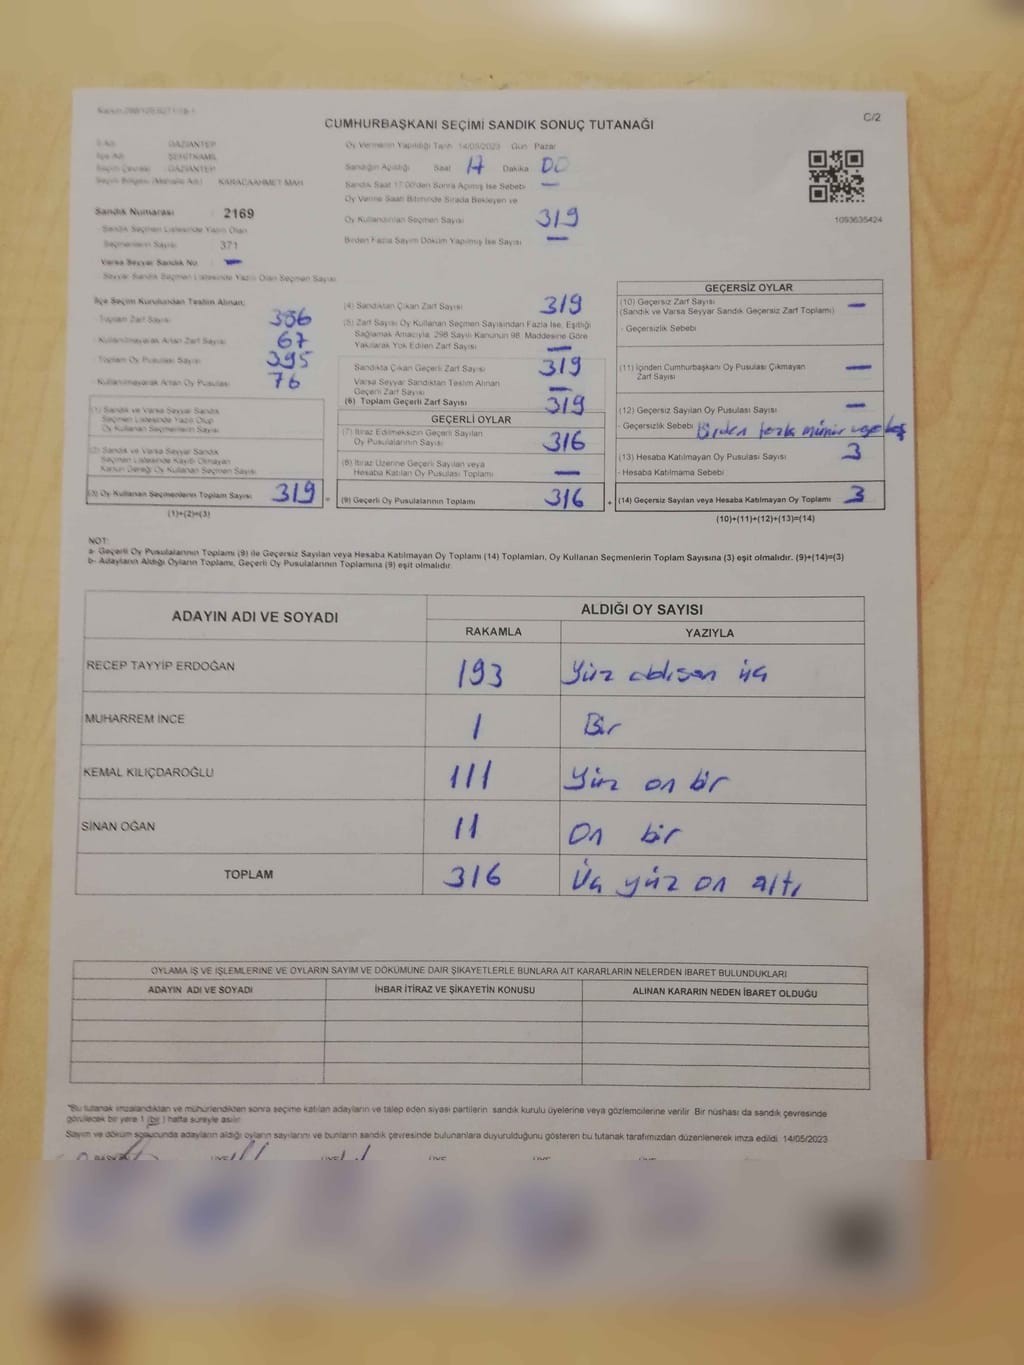 CUMHURBAŞKANI SEÇİMİ SANDIK SONUÇ TUTANAĞI
C/2
İl Adı : GAZİANTEP
İlçe Adı : ŞEHİTKAMİL
Seçim Çevresi : GAZİANTEP
Seçim Bölgesi (Mahalle Adı) : KARACAAHMET MAH
Sandık Numarası : 2169
Sandık Seçmen Listesinde Yazılı Olan
Seçmenlerin Sayısı : 371
Varsa Seyyar Sandık No : —
Seyyar Sandık Seçmen Listesinde Yazılı Olan Seçmen Sayısı
Oy Vermenin Yapıldığı Tarih 14/05/2023 Gün Pazar
Sandığın Açıldığı Saat 17 Dakika 00
Sandık Saat 17:00'den Sonra Açılmış İse Sebebi —
Oy Verme Saati Bitiminde Sırada Bekleyen ve
Oy Kullandırılan Seçmen Sayısı 319
Birden Fazla Sayım Döküm Yapılmış İse Sayısı —
1093635424
İlçe Seçim Kurulundan Teslim Alınan:
Toplam Zarf Sayısı 386
Kullanılmayarak Artan Zarf Sayısı 67
Toplam Oy Pusulası Sayısı 395
Kullanılmayarak Artan Oy Pusulası 76
(1) Sandık ve Varsa Seyyar Sandık
Seçmen Listesinde Yazılı Olup
Oy Kullanan Seçmenlerin Sayısı
(2) Sandık ve Varsa Seyyar Sandık
Seçmen Listesinde Kayıtlı Olmayan
Kanun Gereği Oy Kullanan Seçmen Sayısı
(3) Oy Kullanan Seçmenlerin Toplam Sayısı 319 =
(1)+(2)=(3)
(4) Sandıktan Çıkan Zarf Sayısı 319
(5) Zarf Sayısı Oy Kullanan Seçmen Sayısından Fazla İse, Eşitliği
Sağlamak Amacıyla, 298 Sayılı Kanunun 98. Maddesine Göre
Yakılarak Yok Edilen Zarf Sayısı —
Sandıkta Çıkan Geçerli Zarf Sayısı 319
Varsa Seyyar Sandıktan Teslim Alınan
Geçerli Zarf Sayısı —
(6) Toplam Geçerli Zarf Sayısı 319
GEÇERLİ OYLAR
(7) İtiraz Edilmeksizin Geçerli Sayılan
Oy Pusulalarının Sayısı 316
(8) İtiraz Üzerine Geçerli Sayılan veya
Hesaba Katılan Oy Pusulası Toplamı —
(9) Geçerli Oy Pusulalarının Toplamı 316 +
GEÇERSİZ OYLAR
(10) Geçersiz Zarf Sayısı —
(Sandık ve Varsa Seyyar Sandık Geçersiz Zarf Toplamı)
- Geçersizlik Sebebi
(11) İçinden Cumhurbaşkanı Oy Pusulası Çıkmayan
Zarf Sayısı —
(12) Geçersiz Sayılan Oy Pusulası Sayısı —
- Geçersizlik Sebebi Birden fazla mühür veya boş
(13) Hesaba Katılmayan Oy Pusulası Sayısı 3
- Hesaba Katılmama Sebebi
(14) Geçersiz Sayılan veya Hesaba Katılmayan Oy Toplamı 3
(10)+(11)+(12)+(13)=(14)
NOT:
a- Geçerli Oy Pusulalarının Toplamı (9) ile Geçersiz Sayılan veya Hesaba Katılmayan Oy Toplamı (14) Toplamları, Oy Kullanan Seçmenlerin Toplam Sayısına (3) eşit olmalıdır. (9)+(14)=(3)
b- Adayların Aldığı Oyların Toplamı, Geçerli Oy Pusulalarının Toplamına (9) eşit olmalıdır.
ADAYIN ADI VE SOYADI
ALDIĞI OY SAYISI
RAKAMLA YAZIYLA
RECEP TAYYİP ERDOĞAN 193 Yüz doksan üç
MUHARREM İNCE 1 Bir
KEMAL KILIÇDAROĞLU 111 Yüz on bir
SİNAN OĞAN 11 On bir
TOPLAM 316 Üç yüz on altı
OYLAMA İŞ VE İŞLEMLERİNE VE OYLARIN SAYIM VE DÖKÜMÜNE DAİR ŞİKAYETLERLE BUNLARA AİT KARARLARIN NELERDEN İBARET BULUNDUKLARI
ADAYIN ADI VE SOYADI İHBAR İTİRAZ VE ŞİKAYETİN KONUSU ALINAN KARARIN NEDEN İBARET OLDUĞU
"Bu tutanak imzalandıktan ve mühürlendikten sonra seçime katılan adayların ve talep eden siyasi partilerin sandık kurulu üyelerine veya gözlemcilerine verilir. Bir nüshası da sandık çevresinde
görülecek bir yere 1 (bir) hafta süreyle asılır.
Sayım ve döküm sonucunda adayların aldığı oyların sayılarını ve bunların sandık çevresinde bulunanlara duyurulduğunu gösteren bu tutanak tarafımızdan düzenlenerek imza edildi. 14/05/2023